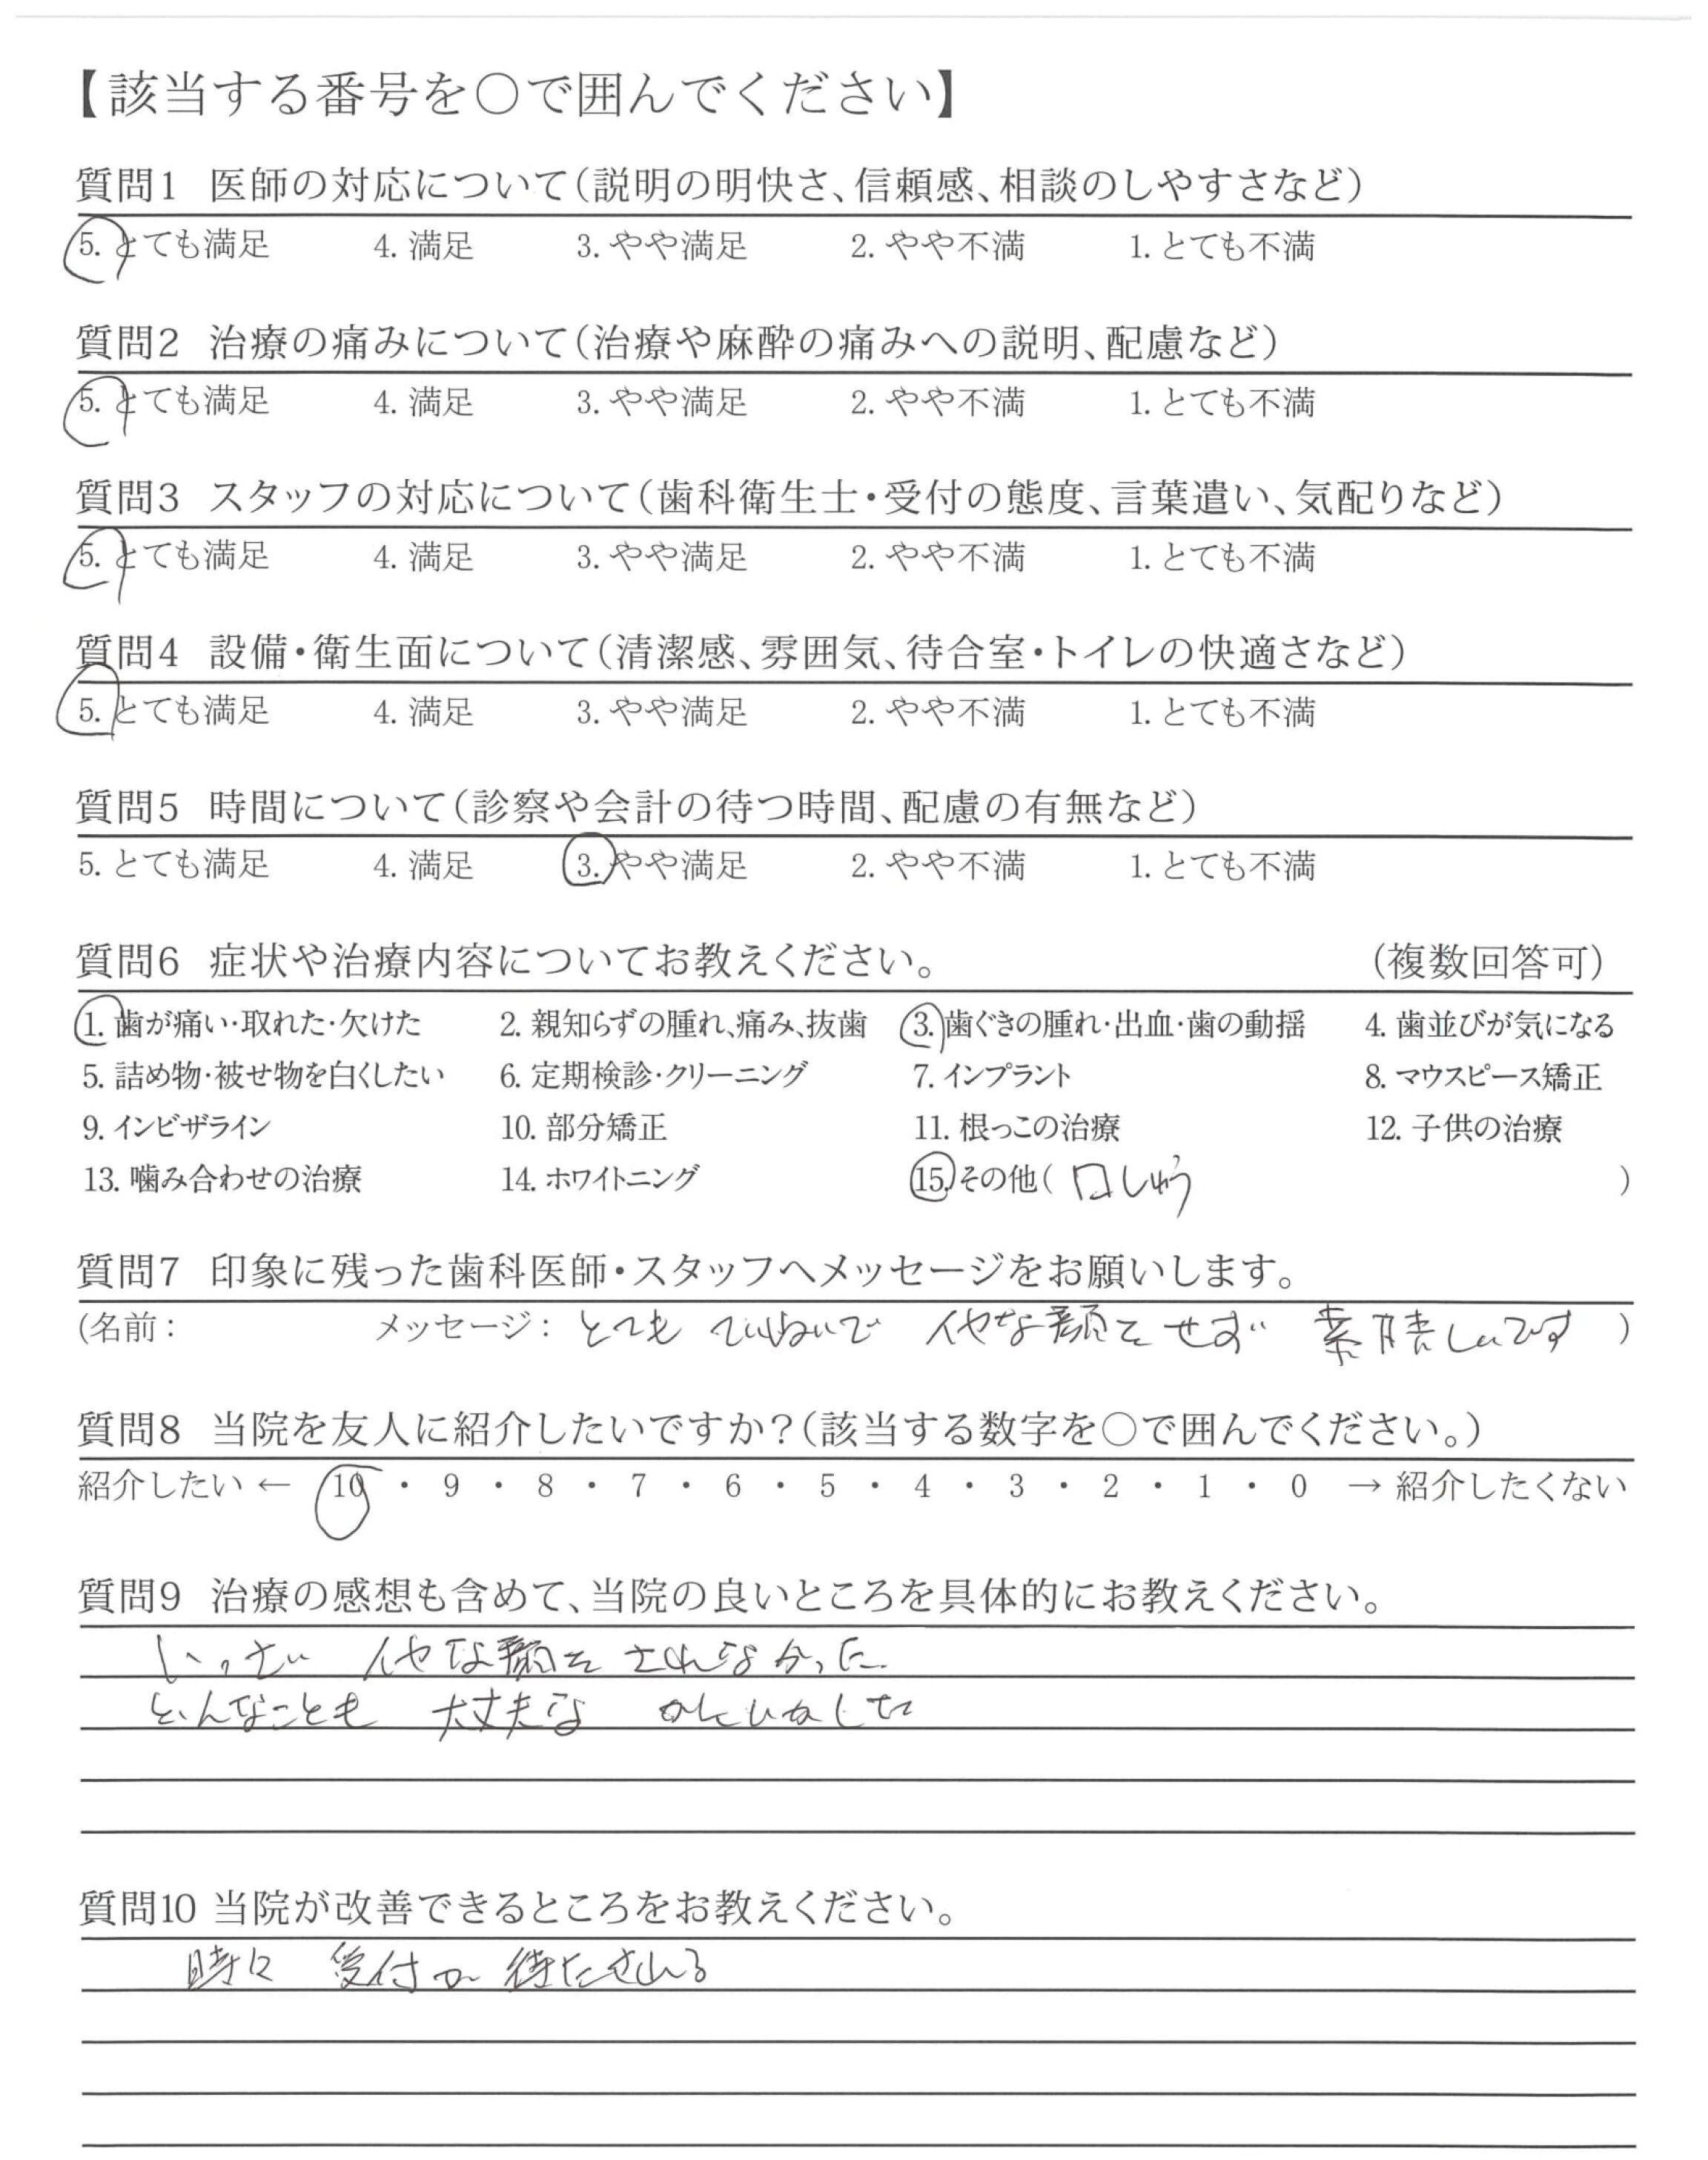 【該当する番号を○で囲んでください】
質問1 医師の対応について(説明の明快さ、信頼感、相談のしやすさなど)
5. とても満足 4. 満足 3. やや満足 2. やや不満 1. とても不満
質問2 治療の痛みについて(治療や麻酔の痛みへの説明、配慮など)
5. とても満足 4. 満足 3. やや満足 2. やや不満 1. とても不満
質問3 スタッフの対応について(歯科衛生士・受付の態度、言葉遣い、気配りなど)
5. とても満足 4. 満足 3. やや満足 2. やや不満 1. とても不満
質問4 設備・衛生面について(清潔感、雰囲気、待合室・トイレの快適さなど)
5. とても満足 4. 満足 3. やや満足 2. やや不満 1. とても不満
質問5 時間について(診察や会計の待つ時間、配慮の有無など)
5. とても満足 4. 満足 3. やや満足 2. やや不満 1. とても不満
質問6 症状や治療内容についてお教えください。 (複数回答可)
1. 歯が痛い・取れた・欠けた 2. 親知らずの腫れ、痛み、抜歯 3. 歯ぐきの腫れ・出血・歯の動揺 4. 歯並びが気になる
5. 詰め物・被せ物を白くしたい 6. 定期検診・クリーニング 7. インプラント 8. マウスピース矯正
9. インビザライン 10. 部分矯正 11. 根っこの治療 12. 子供の治療
13. 噛み合わせの治療 14. ホワイトニング 15. その他( 口しゅう )
質問7 印象に残った歯科医師・スタッフへメッセージをお願いします。
(名前: メッセージ: とても ていねいで イヤな顔をせず 素晴しいです )
質問8 当院を友人に紹介したいですか?(該当する数字を○で囲んでください。)
紹介したい ← 10 ・ 9 ・ 8 ・ 7 ・ 6 ・ 5 ・ 4 ・ 3 ・ 2 ・ 1 ・ 0 → 紹介したくない
質問9 治療の感想も含めて、当院の良いところを具体的にお教えください。
いっさい イヤな顔をされなかった
どんなことも 大丈夫な
質問10 当院が改善できるところをお教えください。
時々 受付で 待たされる